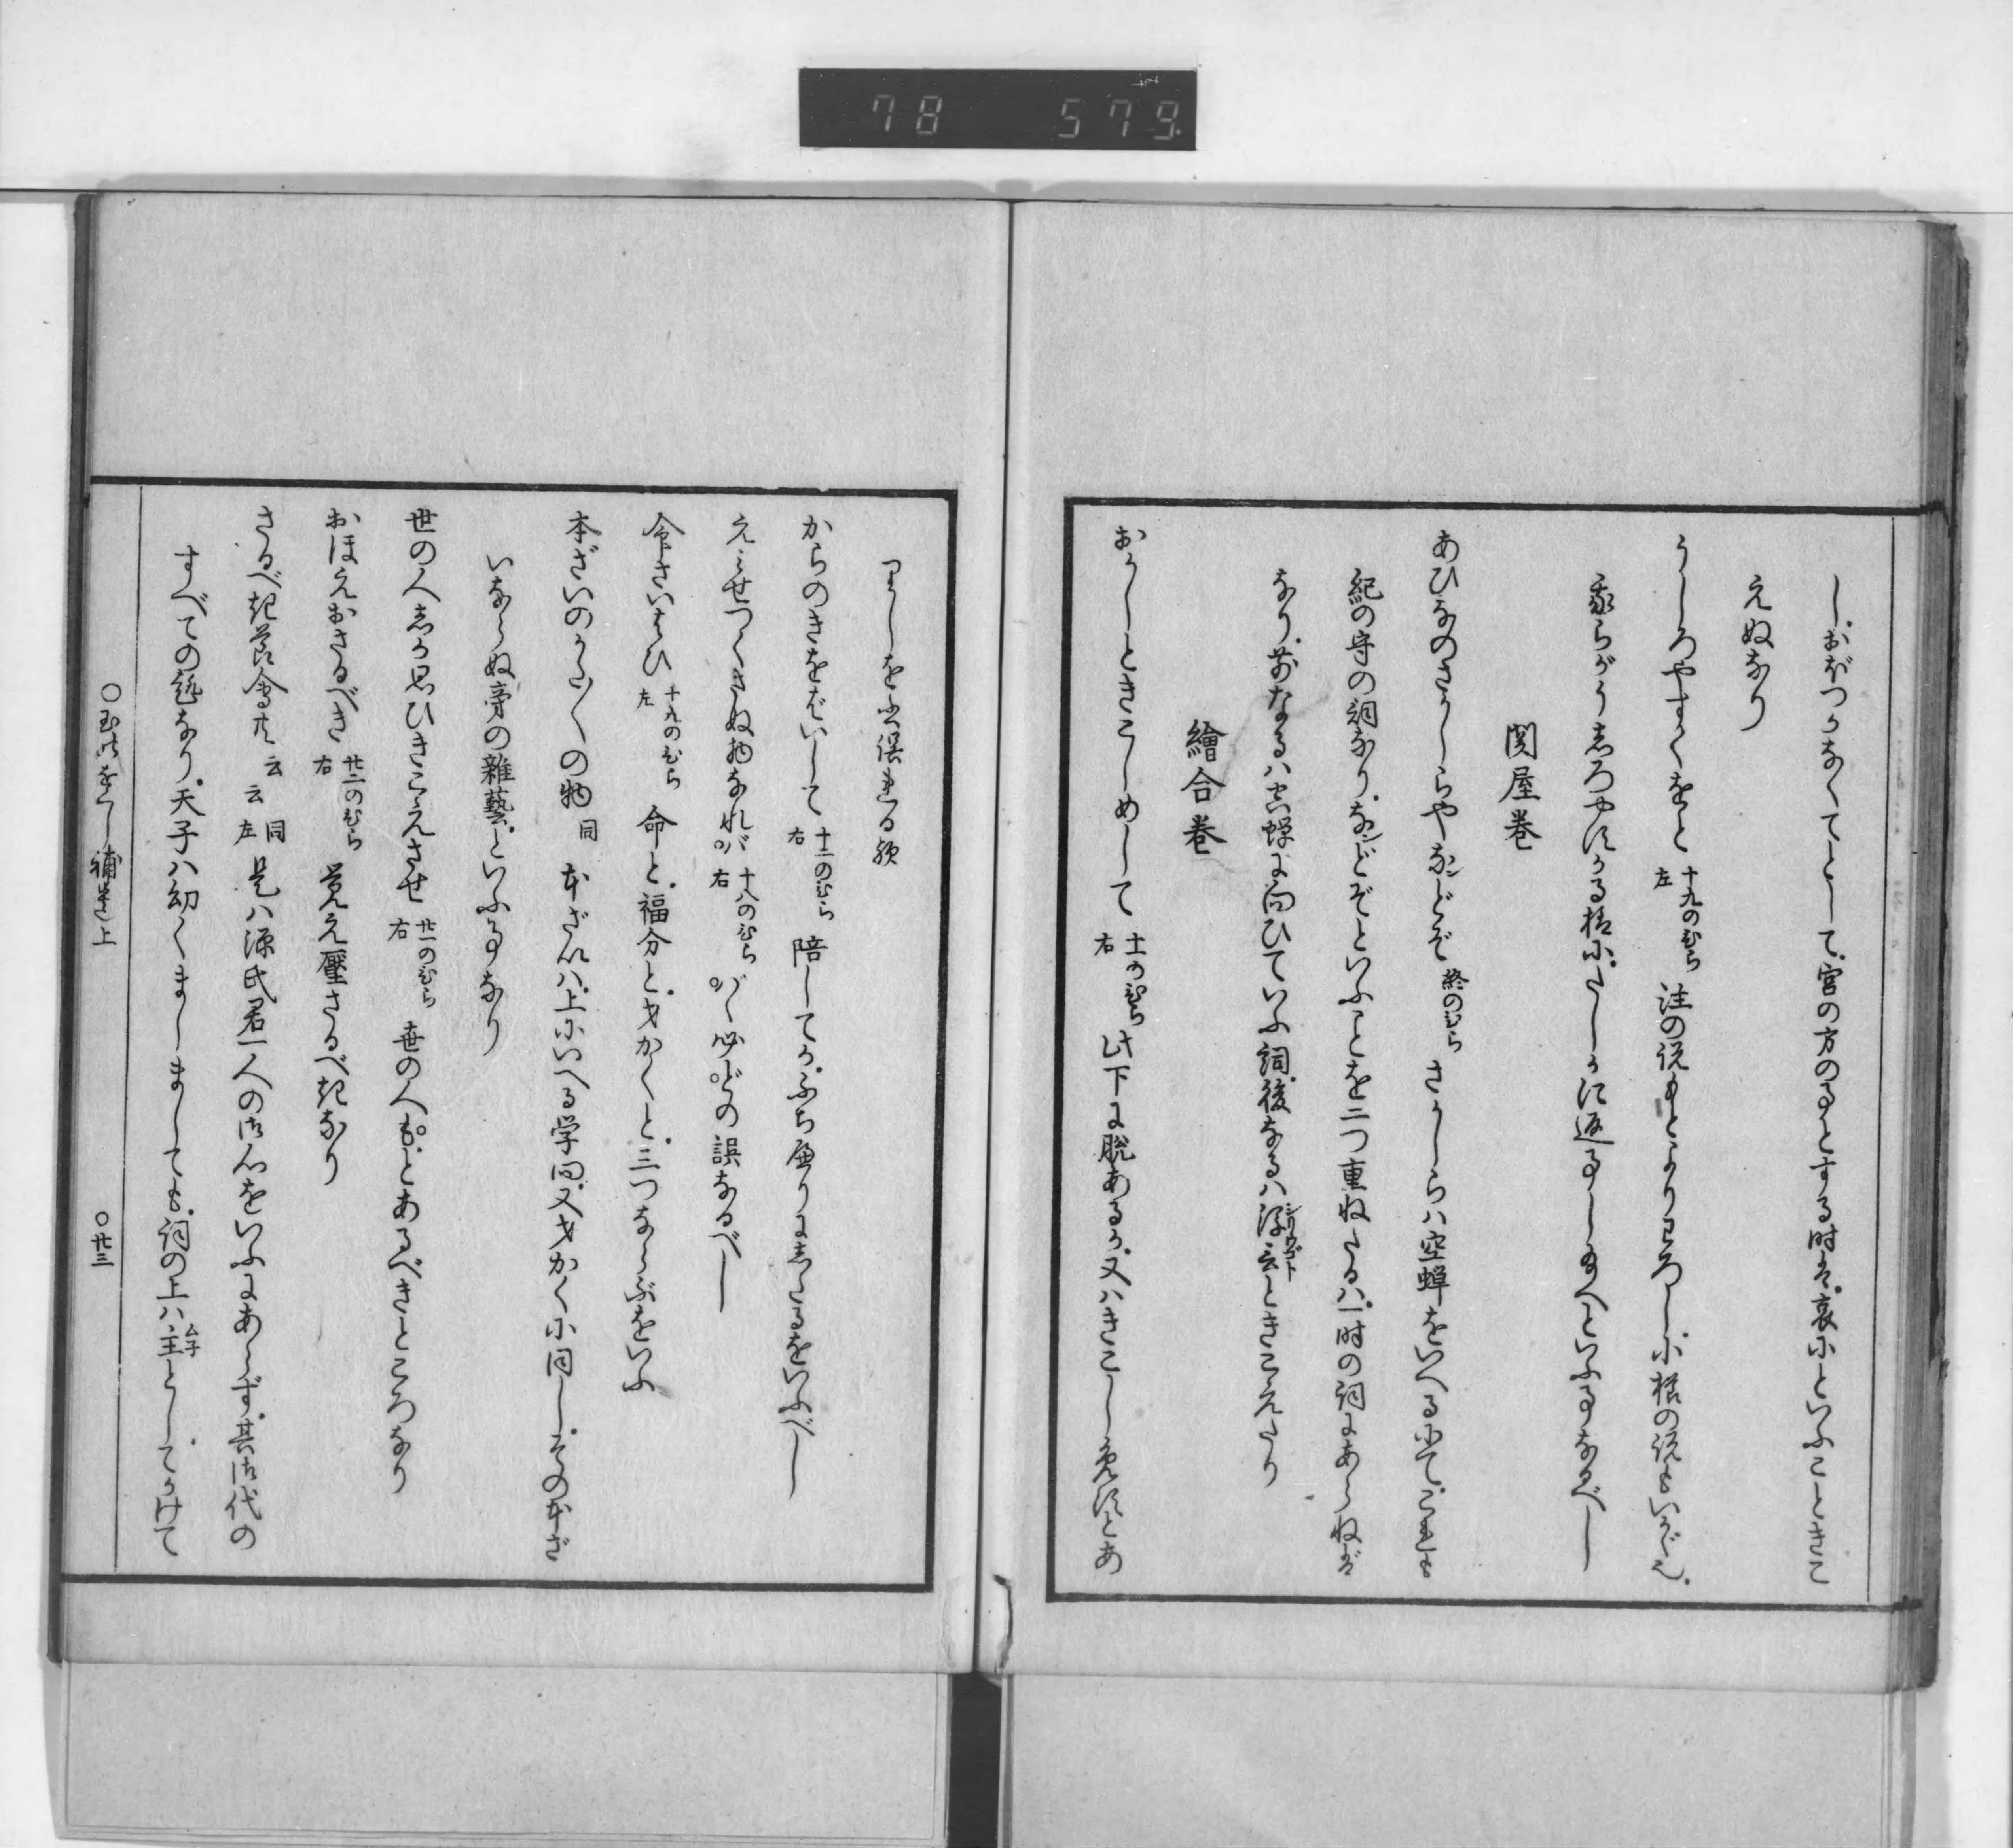 78 579
し、おぼつかなくてとして、宮の方の事とする時は、哀にといふこときこ
えぬなり
うしろやすくをと 十九のひら左 注の説もとよりわろし、小櫛の説もいかゞ也、
我らがうしろやすかる様に、たしかに返事し給へといふ事なるべし
関屋巻
あひなのさかしらやなンどぞ 終のひら さかしらハ空蝉をいへるにて、これも
紀の守の詞なり、なンどぞといふことを二つ重ねたるハ、一時の詞にあらねば
なり、前なるハ空蝉に向ひていふ詞、後なるハ後言シリウゴトときこえたり
繪合巻
おかしときこしめして 十一のひら右 此下に脱あるか、又ハきこし免すとあ
りしを写誤れる歟
からのきをはいして 十二のひら右 陪してか、ふち廉りにしたるをいふべし
えみせつくきぬ物なれバ 十八のひら右 バハ必どの誤なるべし
命さいはひ 十九のひら左 命と、福分と、才かくと、三つならぶをいふ
本ざいのかた〴〵の物 同 本ざいハ、上にいへる学問、又才かくに同し、その本ざ
いならぬ旁の雑藝といふ事なり
世の人しか思ひきこえさせ 廿一のひら右 世の人も、とあるべきところなり
おほえおさるべき 廿二のひら右 覚え壓さるべきなり
さるべき節會共云云 同左 是ハ源氏君一人の御心をいふにあらず、其御代の
すべての趣なり、天子ハ幼くましましても、詞の上ハ主ムネとしてかけて
○玉の小櫛補遺上 ○廿三